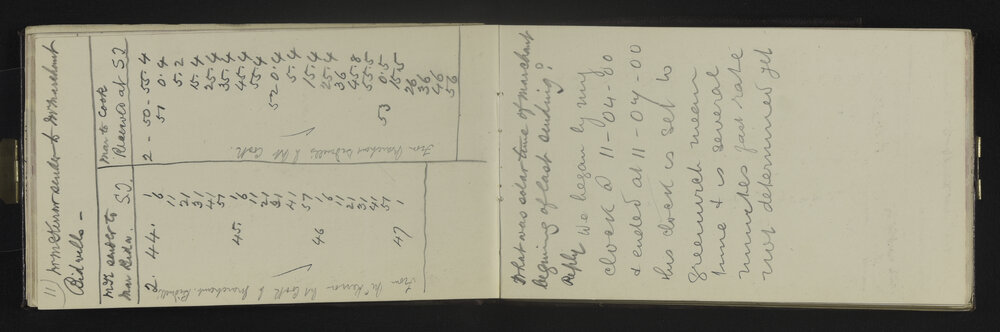 11) Mr McKerrow sender to Mr Marchant
Bidwills —
McK sender to
Mar Bidw. S.T.
2. 44. 1
6
11
21
31
41
51
45 1
6
11
21
31
41
51
46 1
6
11
21
31
41
51
47 1
from McKerrow Mt Cook to Marchant Bidwills
Mar to Cook
Received at S.T
2 - 50 - 55.4
51 0.4
5.2
15.4
25.4
35.4
45.4
55.4
52 0.4
5.4
15.4
25.4
36
45.8
55.5
53 0.5
15.5
26
36
46
56
from Marchant Bidwills to Mt Cook
What was solar time of Marchant
begining of last sending?
Reply We began by my
clock @ 11-04-80
& ended at 11-07-00
this clock is set to
Greenwich mean
time & is several
minutes fast rate
not determined yet